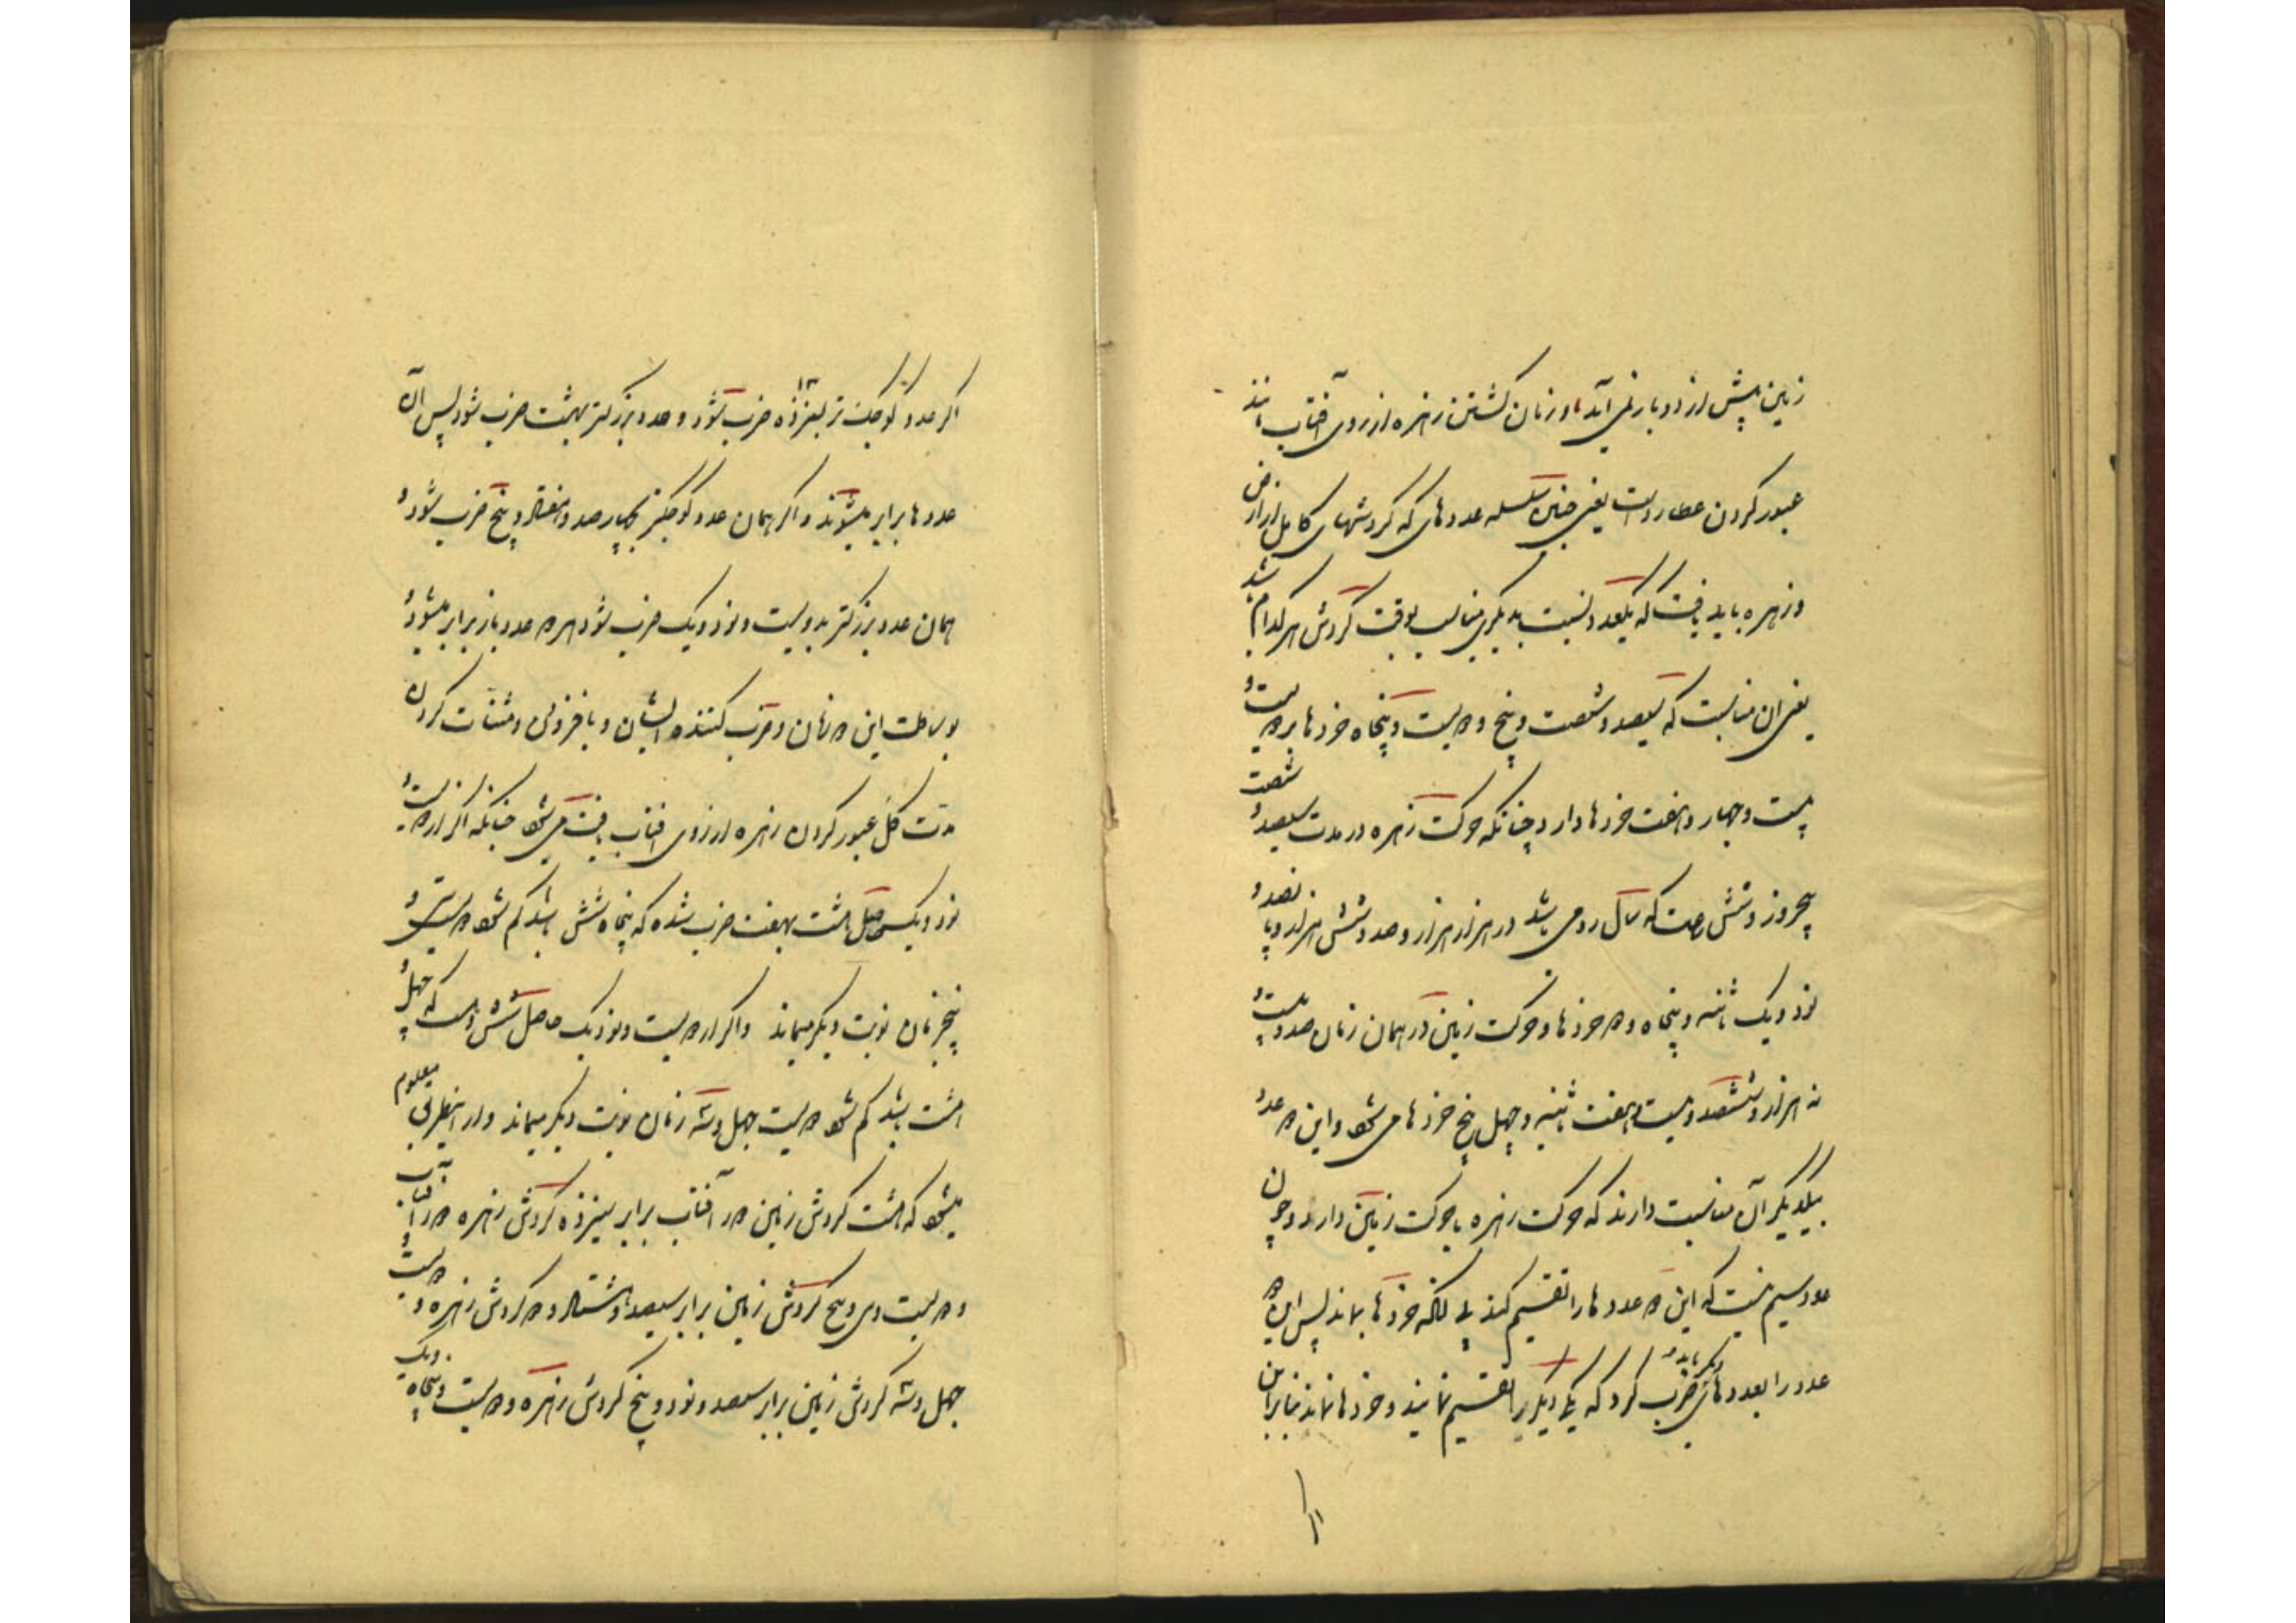 زمین پیش از دو بار نمی آید و زمان گشتن زهره از روی آفتاب مانند
عبور کردن عطارد است یعنی چنین سلسله عددهای که گردشهای کامل از ارض
و زهره باید یافت که یکعدد نسبت بدیگری مناسب بوقت گردش هر کدام باشد
یعنی ان مناسبت که سیصد و شصت و پنج و دویست و پنجاه خردها بر دویست و
بیست و چهار و هفت خردها دارد چنانکه حرکت زهره در مدت سیصد و شصت
پنجروز و شش ساعت که سال رومی باشد در هزار هزار و صد و شش هزار و پانصد و
نود و یک ثانیه و پنجاه و دو خردها و حرکت زمین در همان زمان صد و بیست و
نه هزار و ششصد و بیست و هفت ثانیه و چهل پنج خردها می شود و این دو عدد
بیکدیگر آن مناسبت دارند که حرکت زهره با حرکت زمین دارد و چون
عدد سیم نیست که این دو عددها را تقسیم کند بی آنکه خردها بماند پس این دو
عدد را بعددهای دیگر باید ضرب کرد که یکی دیگر را تقسیم نمایند و خردها نماند بنابراین
اگر عدد کوچک تر بسیزده ۱۳ ضرب شود و عدد بزرگتر بهشت ضرب شود پس آن
عددها برابر میشوند و اگر همان عدد کوچکتر بچهار صد و هفتاد و پنج ضرب شود و
همان عدد بزرگتر بدویست و نود و یک ضرب شود هر دو عدد باز برابر میشود و
بوساطت این دو زمان و ضرب کننده ایشان و با فزونی و مثنات کردن
مدت کل عبور کردن زهره از روی افتاب یافت می شود چنانکه اگر از دویست و
نود و یک حاصل هشت بهفت ضرب شده که پنجاه شش باشد کم شود دویست سی و
پنج زمان نوبت دیگر میماند و اگر از دویست و نود یک حاصل شش هشت که چهل و
هشت باشد کم شود دویست چهل و سه زمان نوبت دیگر میماند و از اینطریق معلوم
میشود که هشت گردش زمین دور آفتاب برابر سیزده گردش زهره دور آفتاب
و دویست و سی و پنج گردش زمین برابر سیصد و هشتاد و دو گردش زهره و دویست و
چهل و سه گردش زمین برابر سیصد و نود و پنج گردش زهره و دویست و پنجاه و یک